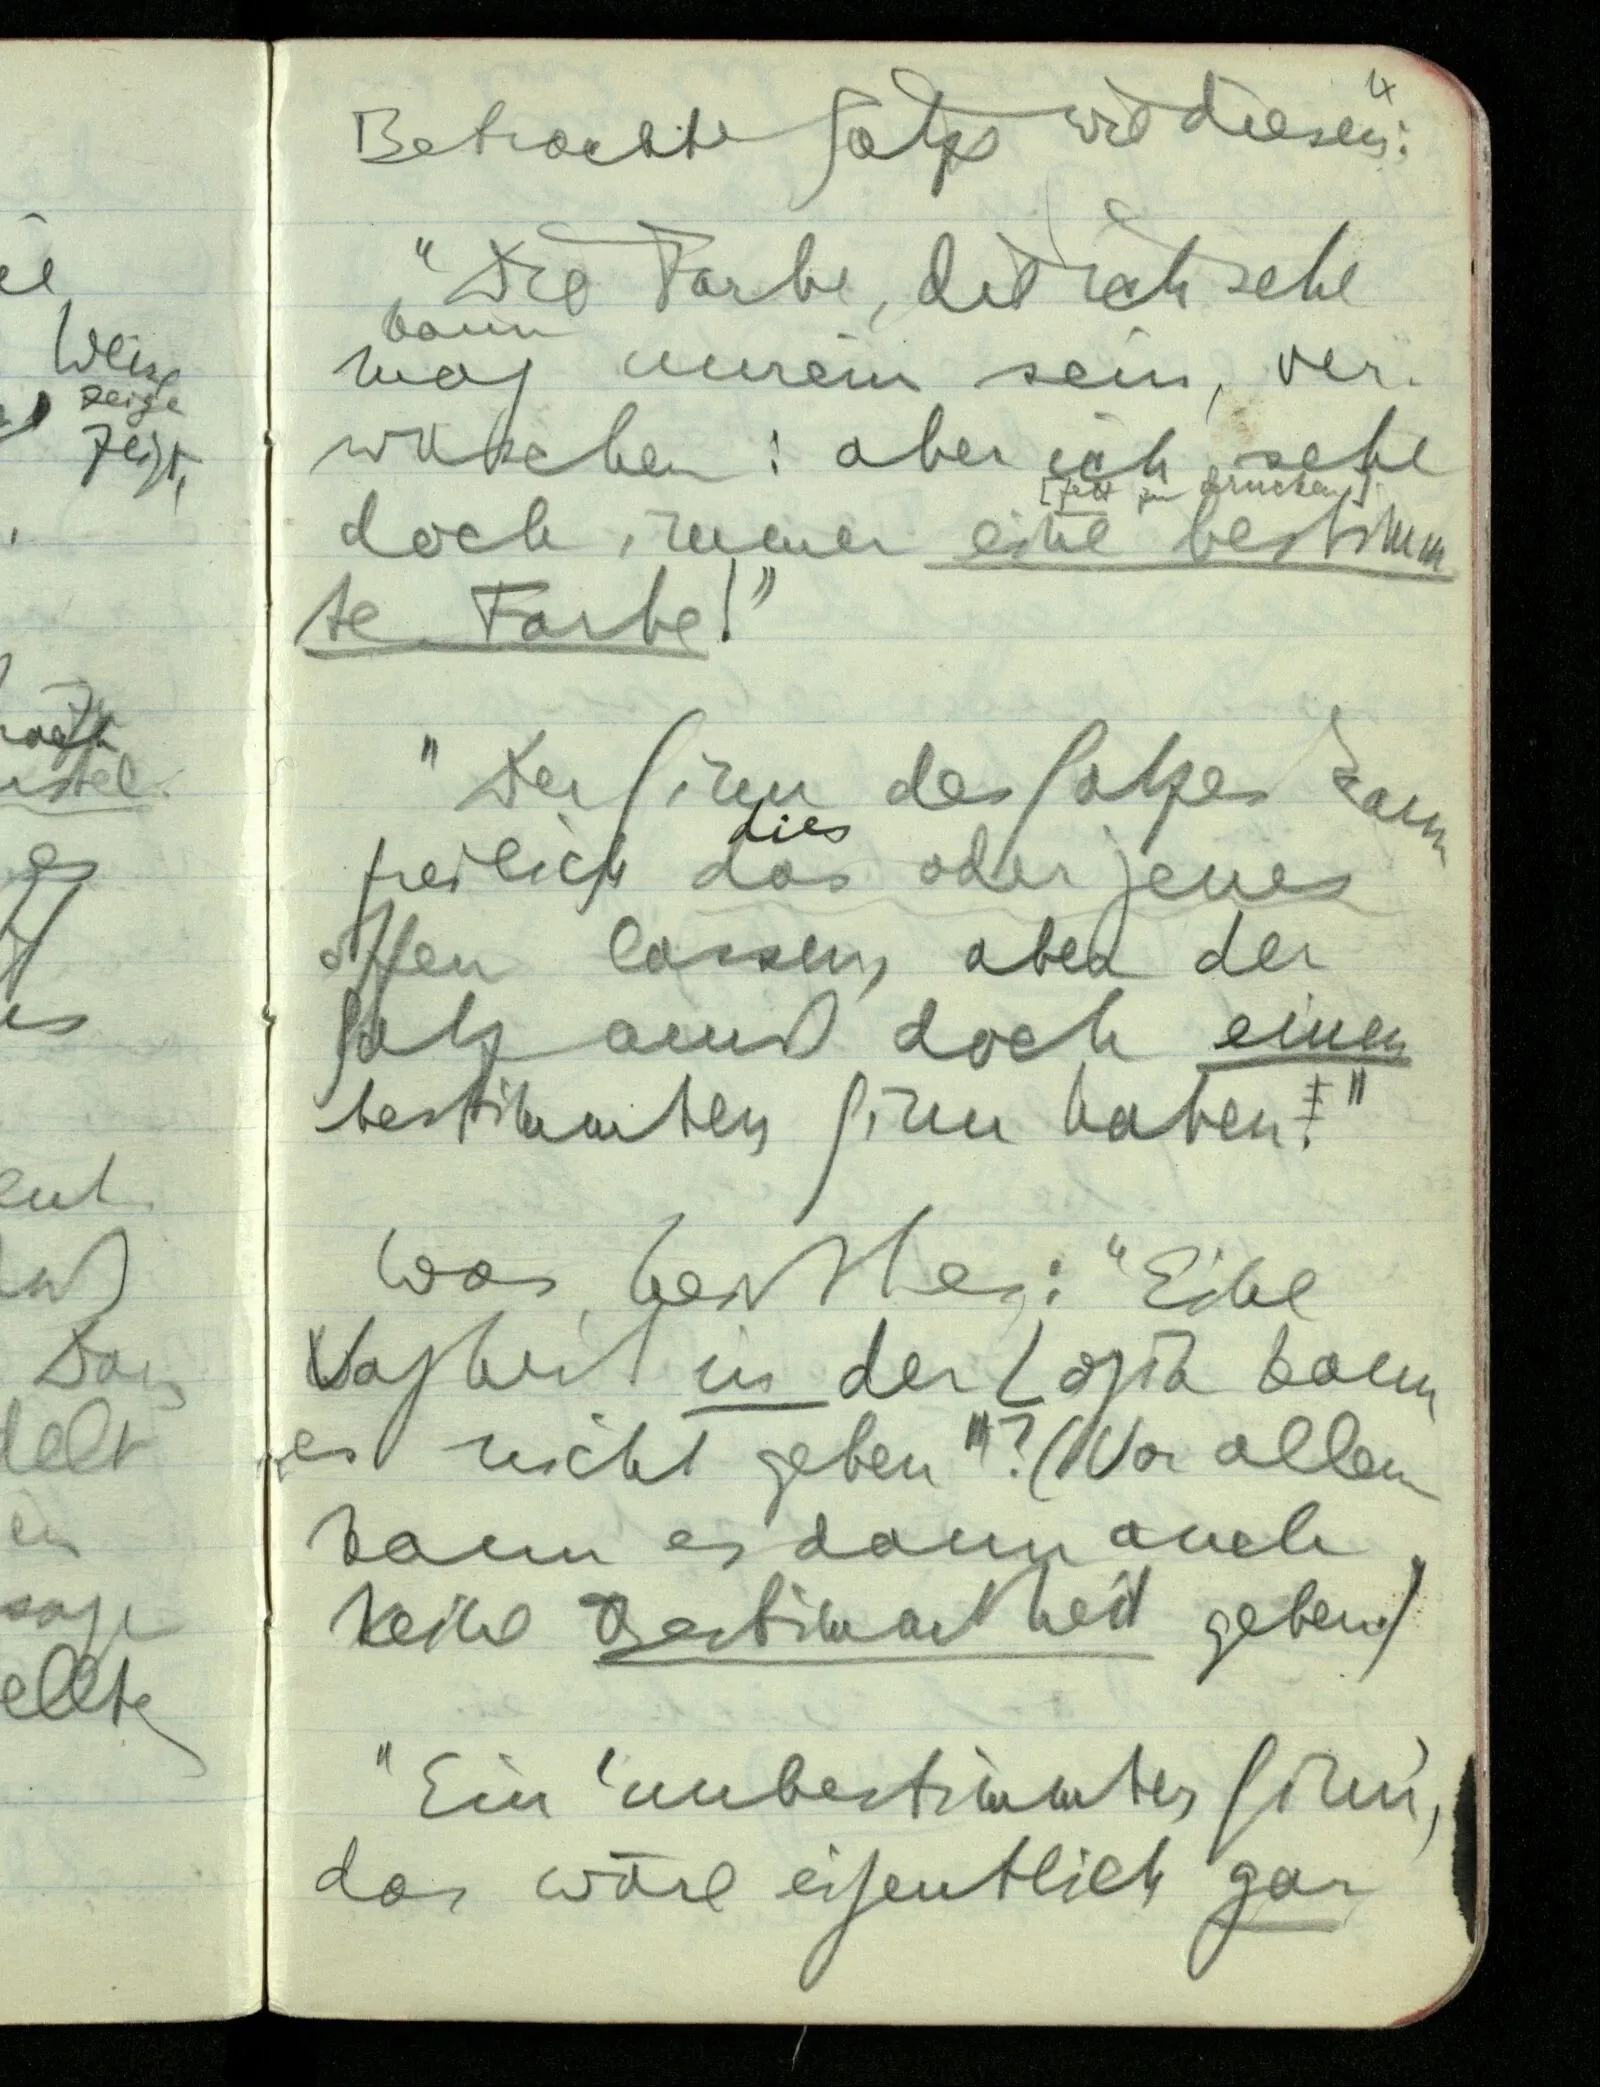 el
Weise
zeige
zeigt,
es
Das
delt
en
sage
ellte
4
Betrachte Sätze wie diesen:
"Die Farbe, die ich sehe
kann
mag unrein sein, ver-
waschen: aber ich sehe
[fett zu drucken]
doch immer eine bestimm
te Farbe!"
"Der Sinn des Satzes kann
dies
freilich das oder jenes
offen lassen, aber der
Satz muß doch einen
bestimmten Sinn haben!"
Was heißt es: "Eine
Vagheit in der Logik kann
es nicht geben"? (Vor allem
kann es dann auch
keine Bestimmtheit geben.)
"Ein 'unbestimmter Sinn',
das wäre eigentlich gar